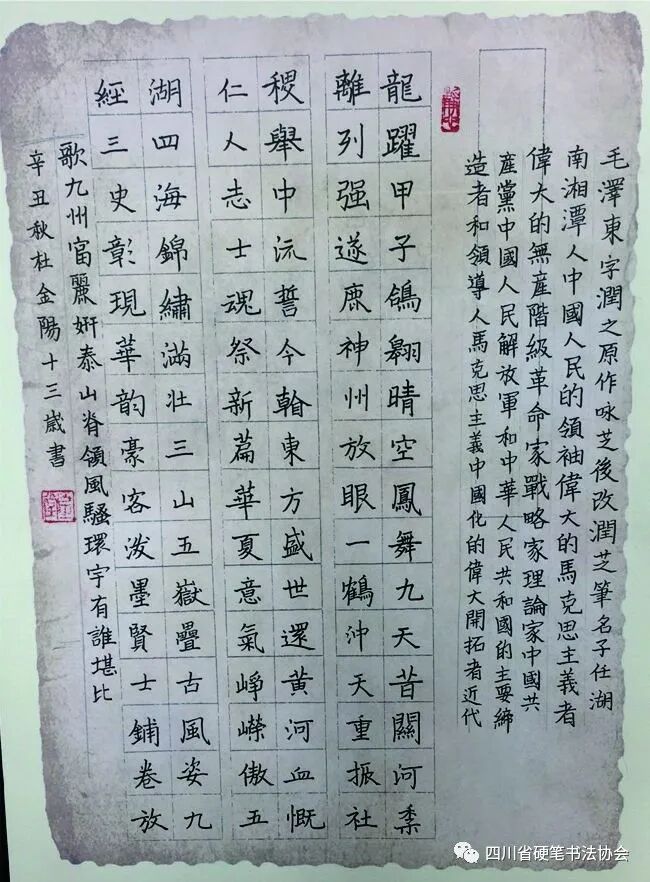 毛澤東字潤之原作咏芝後改潤芝筆名子任湖
南湘潭人中國人民的領袖偉大的馬克思主義者
偉大的無産階級革命家戰略家理論家中國共
産黨中國人民解放軍和中華人民共和國的主要締
造者和領導人馬克思主義中國化的偉大開拓者近代
龍躍甲子鴿翱晴空鳳舞九天昔關河黍
離列强遂鹿神州放眼一鶴沖天重振社
稷舉中流誓今翰東方盛世還黄河血慨
仁人志士魂祭新篇華夏意氣崢嶸傲五
湖四海錦繡滿壯三山五嶽疊古風姿九
經三史彰現華韵豪客泼墨賢士鋪卷放
歌九州富麗妍泰山脊領風騷環宇有誰堪比
辛丑秋杜金陽十三歲書
四川省硬笔书法协会